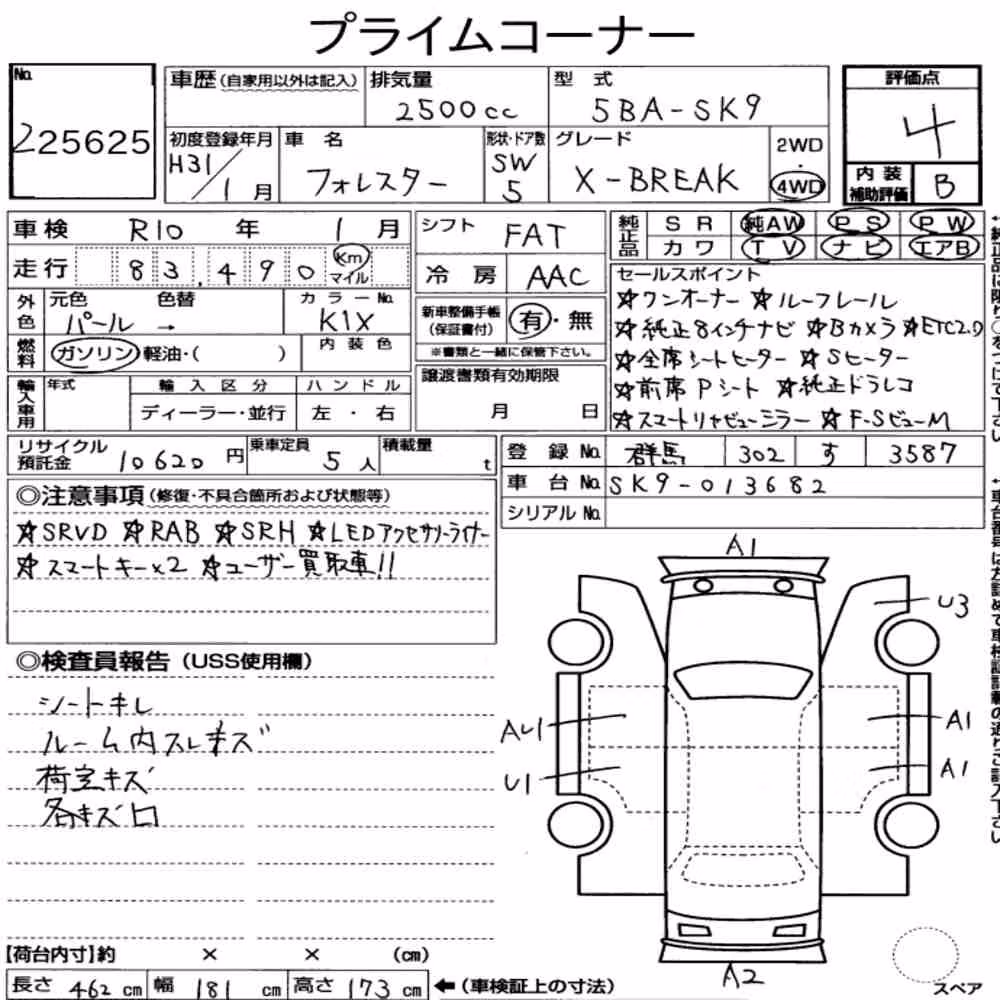 プライムコーナー
No. 225625
車歴 (自家用以外は記入)
排気量 2500cc
型式 5BA-SK9
評価点 4
初度登録年月 H31/1月
車名 フォレスター
形状・ドア数 SW 5
グレード X-BREAK
2WD・4WD
内装補助評価 B
車検 R10年 1月
走行 83,490 Km マイル
シフト FAT
冷房 AAC
純正品 SR 純AW PS PW
カワ TV ナビ エアB
外色 元色 パール 色替 →
カラーNo. K1X
燃料 ガソリン・軽油・( )
内装色
新車整備手帳(保証書付) 有・無
※書類と一緒に保管下さい。
セールスポイント
☆ワンオーナー ☆ルーフレール
☆純正8インチナビ ☆Bカメラ ☆ETC2.0
☆全席シートヒーター ☆Sヒーター
☆前席Pシート ☆純正ドラレコ
☆スマートリヤビューミラー ☆F-SビューM
輸入車用 年式 輸入区分 ハンドル
ディーラー・並行 左・右
譲渡書類有効期限 月 日
リサイクル預託金 10620円
乗車定員 5人
積載量 t
登録No. 群馬 302 す 3587
車台No. SK9-013682
シリアルNo.
◎注意事項 (修復・不具合箇所および状態等)
☆SRVD ☆RAB ☆SRH ☆LEDアクセサリーライナー
☆スマートキー×2 ☆ユーザー買取車!!
◎検査員報告 (USS使用欄)
シートキレ
ルーム内スレキズ
荷室キズ
各キズ凹
A1
U3
AU1
A1
U1
A1
A2
スペア
【荷台内寸】約 × × (cm)
長さ 462 cm 幅 181 cm 高さ 173 cm ←(車検証上の寸法)